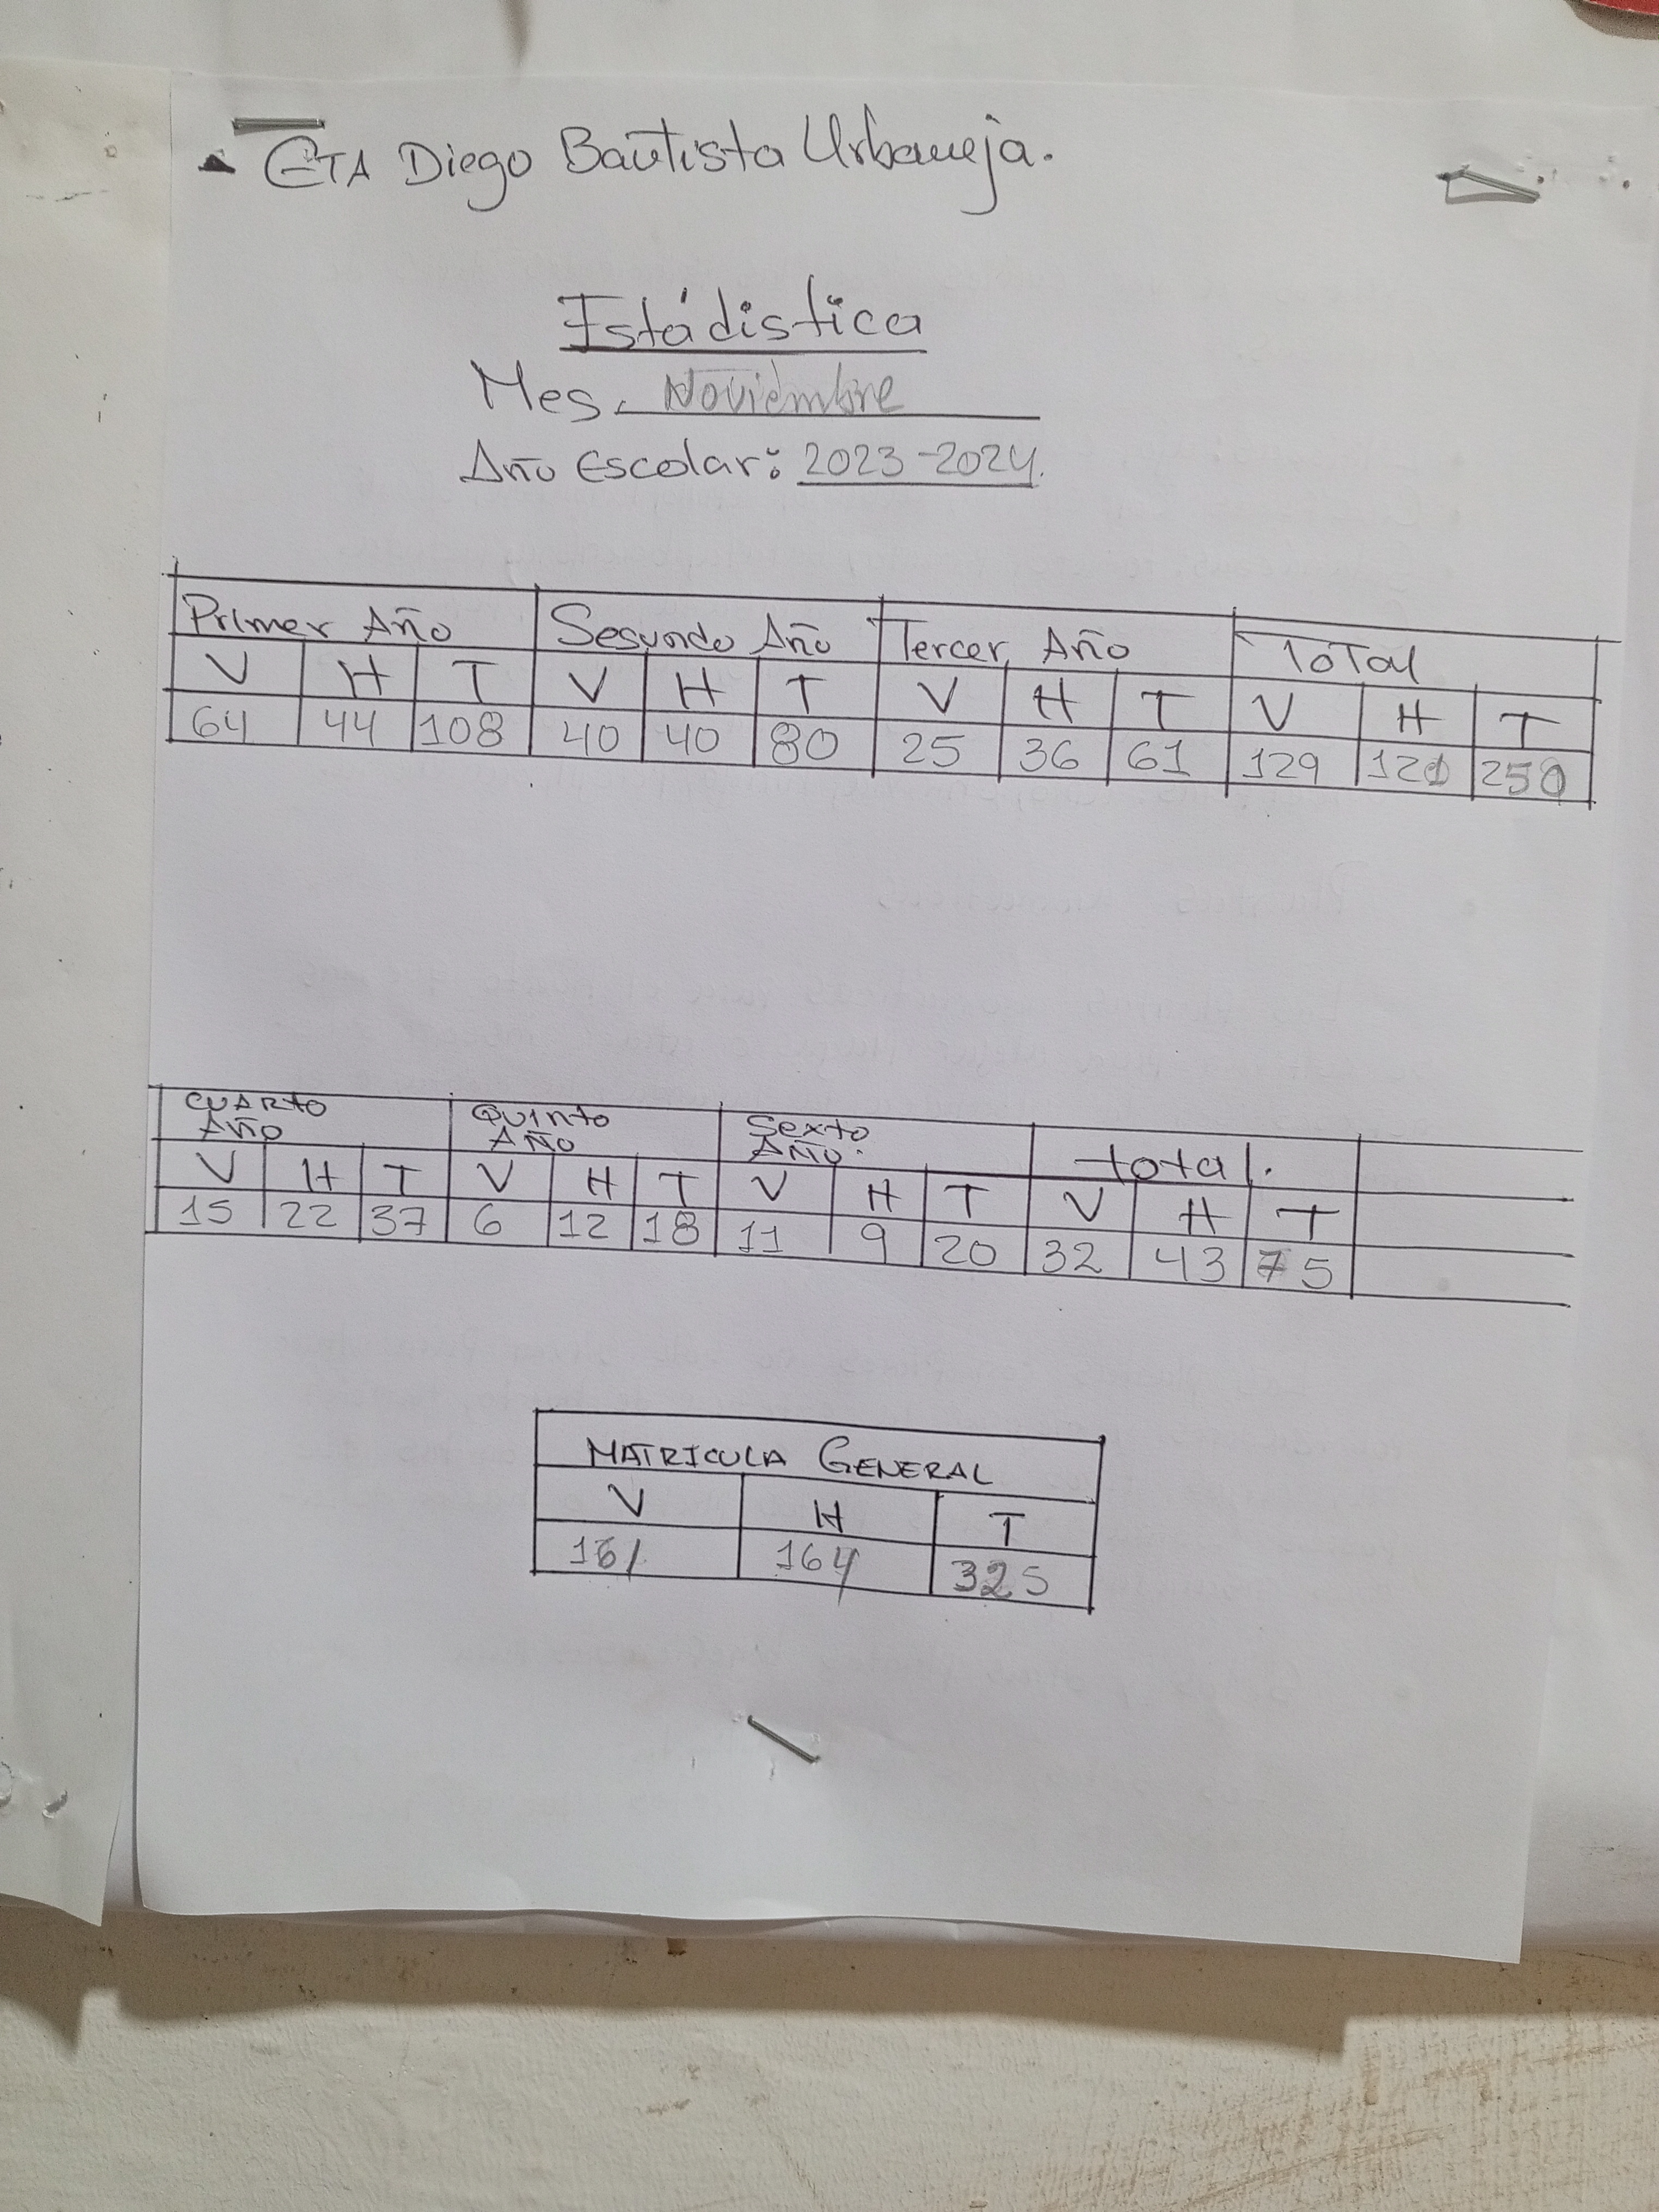 ETA Diego Bautista Urbaneja.
Estádistica
Mes. Noviembre
Año Escolar: 2023-2024.
Primer Año Segundo Año Tercer Año Total
V H T V H T V H T V H T
64 44 108 40 40 80 25 36 61 129 121 250
CUARTO QUINTO Sexto total.
AÑO AÑO AÑO.
V H T V H T V H T V H T
15 22 37 6 12 18 11 9 20 32 43 75
MATRICULA GENERAL
V H T
161 164 325